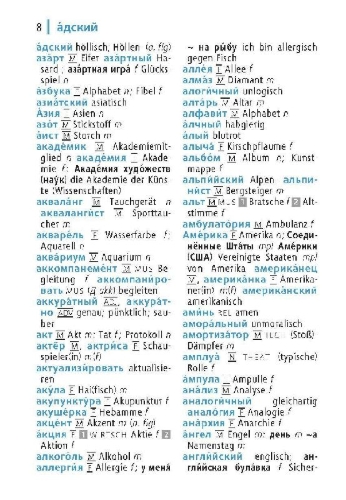 8 | а́дский
а́дский höllisch; Höllen (a. fig)
аза́рт M Eifer аза́ртный Ha-
sard ; аза́ртная игра́ f Glücks
spiel n
а́збука F Alphabet n; Fibel f
азиа́тский asiatisch
А́зия F Asien n
азо́т M Stickstoff m
а́ист M Storch m
акаде́мик M Akademiemit-
glied n акаде́мия F Akade
mie f; Акаде́мия худо́жеств
(нау́к) die Akademie der Küns
te (Wissenschaften)
аквала́нг M Tauchgerät n
аквалангист M Sporttau-
cher m
акваре́ль F Wasserfarbe f;
Aquarell n
аква́риум M Aquarium n
аккомпанеме́нт M MUS Be-
gleitung f аккомпани́ро-
вать MUS (Д akk) begleiten
аккура́тный ADJ, аккура́т-
но ADV genau; pünktlich; sau-
ber
акт M Akt m; Tat f; Protokoll n
актёр M, актри́са F Schau-
spieler(in) m(f)
актуализи́ровать aktualisie-
ren
аку́ла F Hai(fisch) m
акупункту́ра F Akupunktur f
акуше́рка F Hebamme f
акце́нт M Akzent m (a. fig)
а́кция F 1 WIRTSCH Aktie f 2
Aktion f
алкого́ль M Alkohol m
аллерги́я F Allergie f; у меня́
~ на ры́бу ich bin allergisch
gegen Fisch
алле́я F Allee f
алма́з M Diamant m
алоги́чный unlogisch
алта́рь M Altar m
алфави́т M Alphabet n
а́лчный habgierig
а́лый blutrot
алыча́ F Kirschpflaume f
альбо́м M Album n; Kunst
mappe f
альпи́йский Alpen альпи-
ни́ст M Bergsteiger m
альт M MUS 1 Bratsche f 2 Alt-
stimme f
амбулато́рия M Ambulanz f
Аме́рика F Amerika n; Соеди-
нённые Шта́ты mpl Аме́рики
(США) Vereinigte Staaten mpl
von Amerika америка́нец
M, америка́нка F Amerika-
ner(in) m(f) америка́нский
amerikanisch
ами́нь REL amen
амора́льный unmoralisch
амортиза́тор M TECH (Stoß)
Dämpfer m
амплуа́ N THEAT (typische)
Rolle f
а́мпула F Ampulle f
ана́лиз M Analyse f
аналоги́чный gleichartig
анало́гия F Analogie f
ана́рхия F Anarchie f
а́нгел M Engel m; день m ~а
Namenstag m
англи́йский englisch; ан-
гли́йская була́вка f Sicher-